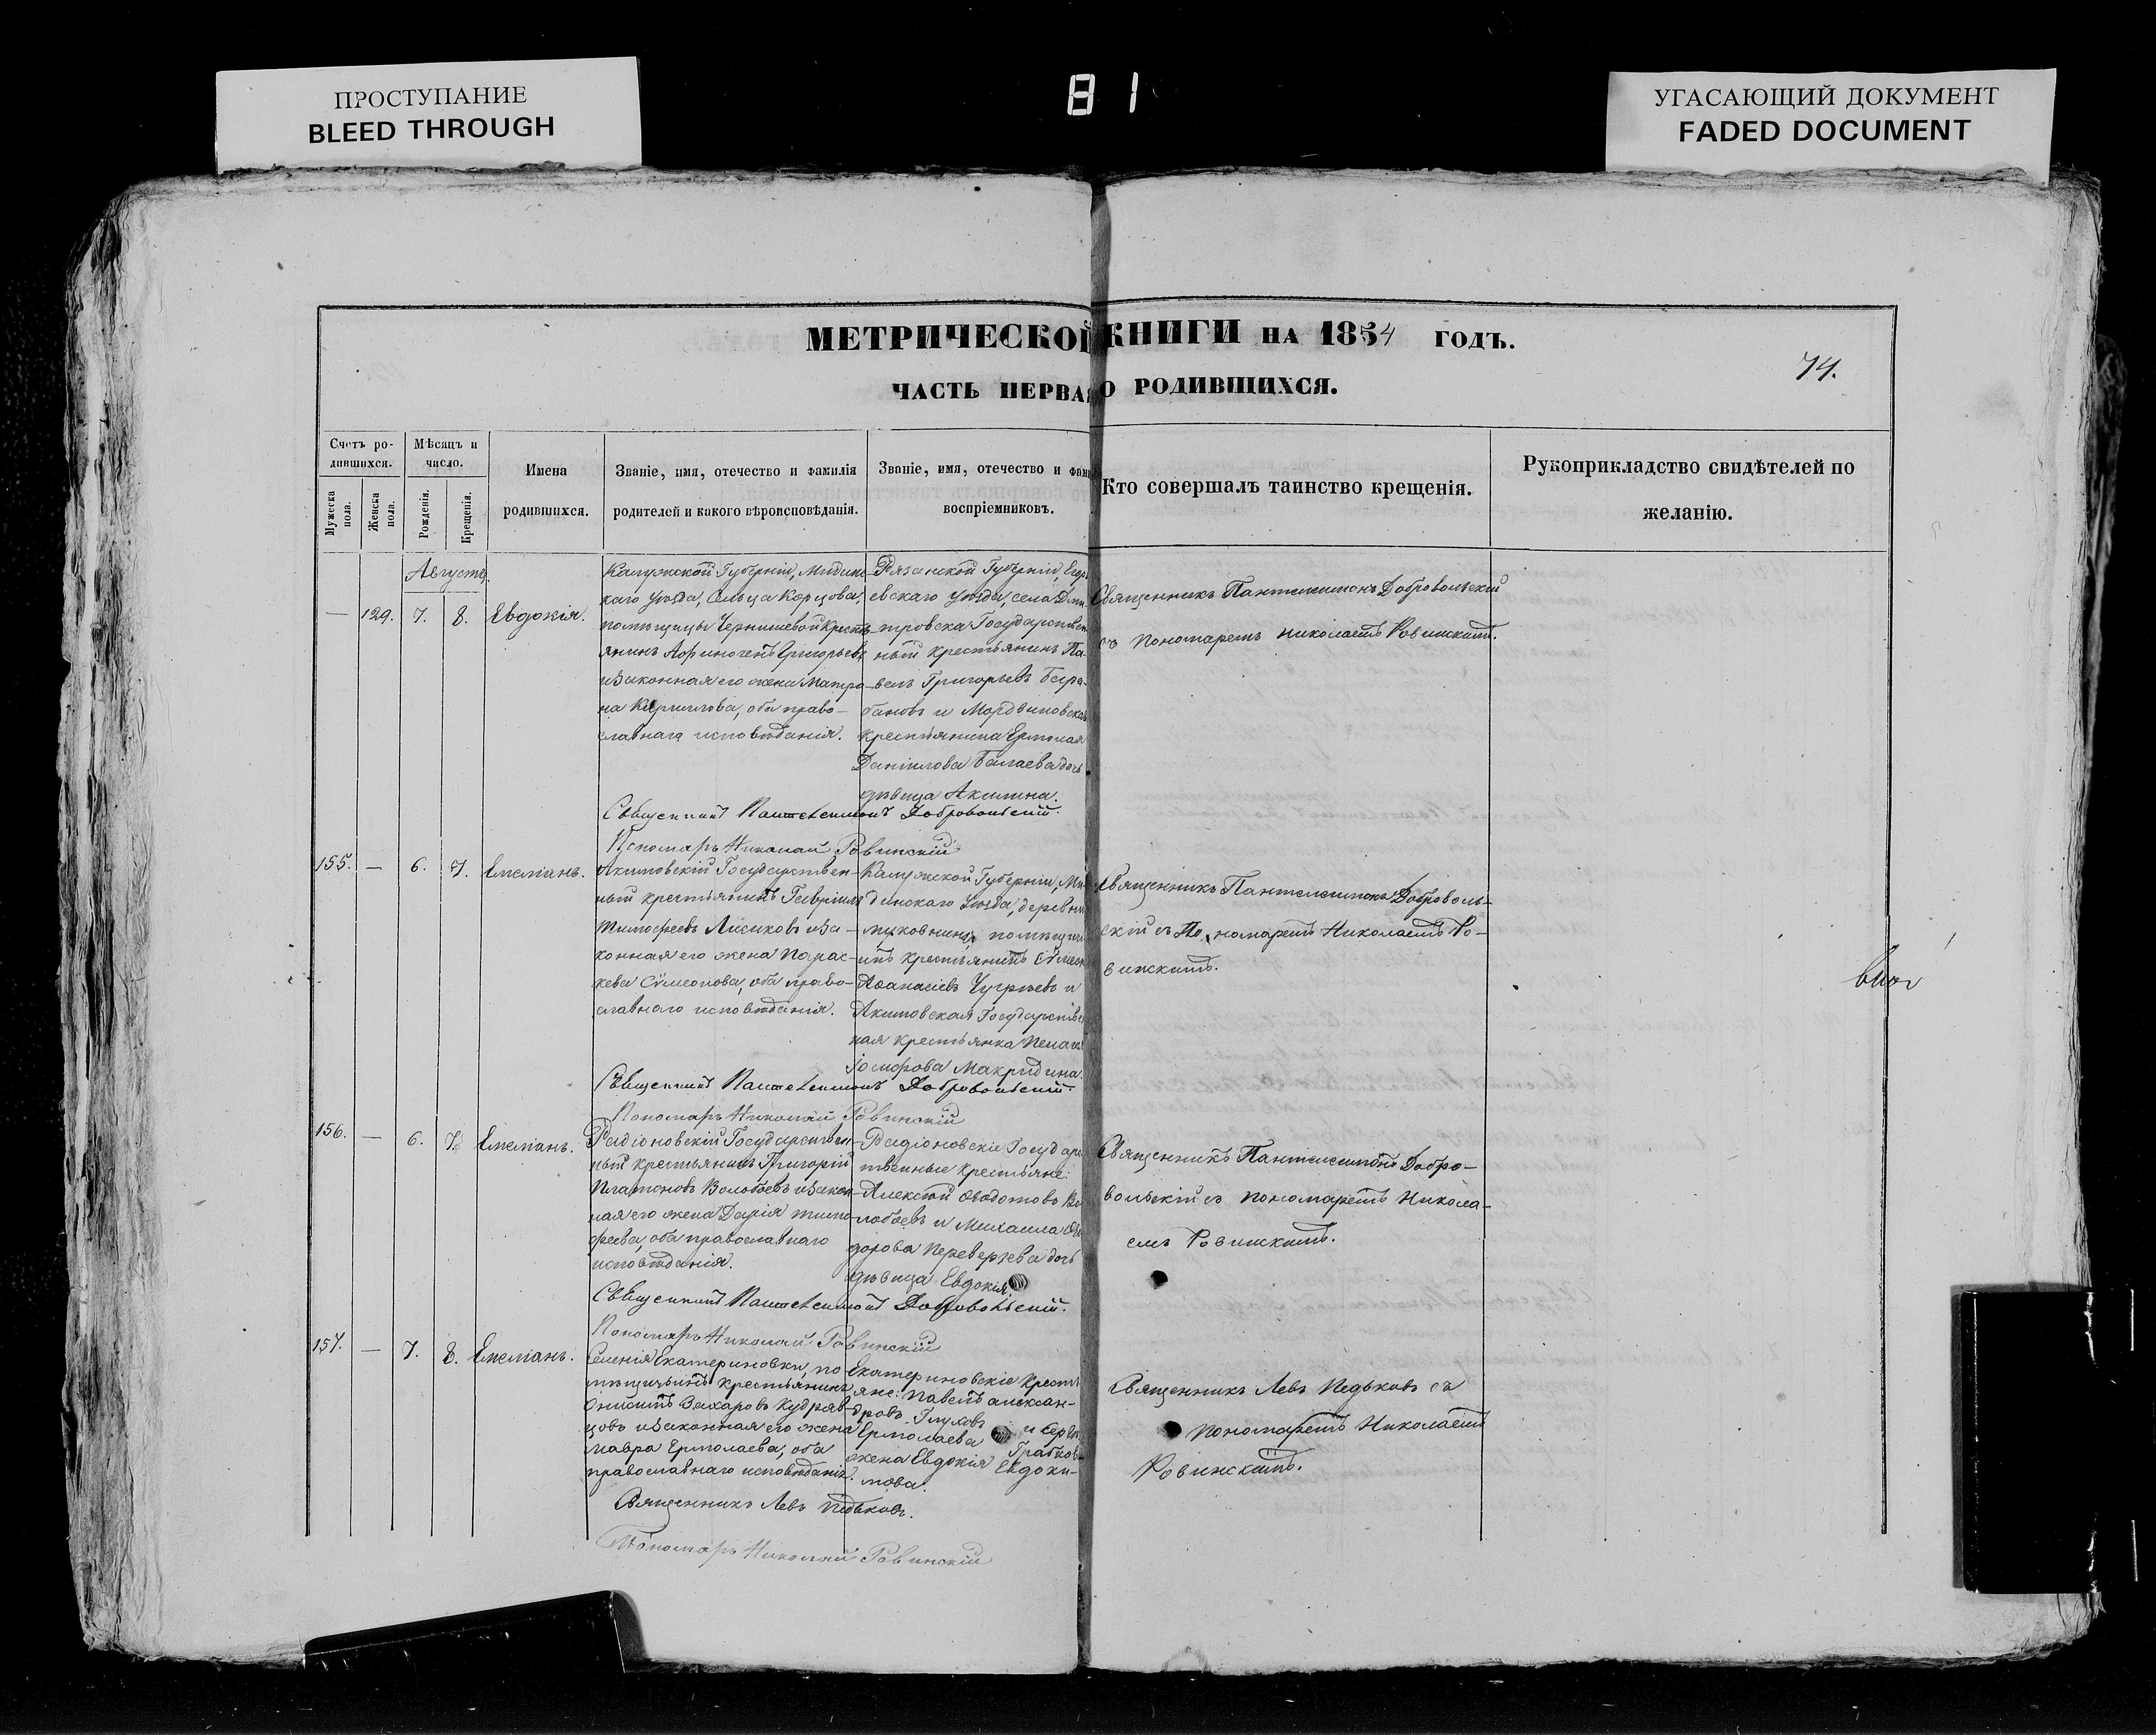 ПРОСТУПАНИЕ
BLEED THROUGH
81
УГАСАЮЩИЙ ДОКУМЕНТ
FADED DOCUMENT
МЕТРИЧЕСКОЙ КНИГИ НА 1854 ГОДЪ.
74.
ЧАСТЬ ПЕРВАЯ О РОДИВШИХСЯ.
Счетъ ро-
дившихся.
Мужеска пола.
Женска пола.
Мѣсяцъ и
число.
Рожденія.
Крещенія.
Имена
родившихся.
Званіе, имя, отечество и фамилія
родителей и какого вѣроисповѣданія.
Званіе, имя, отечество и фами
воспріемниковъ.
Кто совершалъ таинство крещенія.
Рукоприкладство свидѣтелей по
желанію.
Августъ.
— 129. 7. 8. Евдокія.
Калужской Губерніи, Мидынс
каго уѣзда, Сельца Карцова,
помѣщицы Чернышевой Кресть
янинъ Афиногенъ Григорьевъ
и законная его жена Матро
на Кириллова, оба право-
славнаго исповѣданія.
Рязанской Губерніи, Егор
евскаго уѣзда, села Дми
тровска Государствен
ный крестьянинъ Па-
велъ Григорьевъ
бановъ и Мордвиновскаго
крестьянина Ермолая
Даніилова Балаева дочь
дѣвица Акилина.
Священникъ Пантелеимонъ Добровольскій
съ пономаремъ Николаемъ Ровинскимъ.
Священникъ Пантелеимонъ Добровольскій.
Пономарь Николай Ровинскій
155. — 6. 7. Емеліанъ.
Акимовскій Государствен-
ный крестьянинъ Гавріилъ
Тимофеевъ Лисиковъ и за-
конная его жена Парас-
кева Сѵмеонова, оба право-
славнаго исповѣданія.
Калужской Губерніи, Мы
дынскаго уѣзда, деревни
помѣщич
инъ крестьянинъ Сѵмеон
Аѳанасіевъ Чугрѣевъ и
Акимовская Государствен
ная крестьянка Пелагея
Макридина.
Священникъ Пантелеимонъ Доброволь-
скій съ Пономаремъ Николаемъ Ро-
винскимъ.
Священникъ Пантелеимонъ Добровольскій.
Пономарь Николай Ровинскій
156. — 6. 7. Емеліанъ.
Радіоновскій Государствен
ный крестьянинъ Григорій
Платоновъ Волобоевъ и закон
ная его жена Дарія Тимо
феева, оба православнаго
исповѣданія.
Радіоновскіе Государс
твенные крестьяне:
Алексѣй Ѳеодотовъ Во
лобоевъ и Михаила Ѳео
дорова Переверзева дочь
дѣвица Евдокія.
Священникъ Пантелеимонъ Добро-
вольскій съ пономаремъ Никола-
емъ Ровинскимъ.
Священникъ Пантелеимонъ Добровольскій.
Пономарь Николай Ровинскій
157. — 7. 8. Емеліанъ.
Селенія Екатериновки, по
мѣщичьинъ крестьянинъ
Онисимъ Захаровъ Кудряв
цовъ и законная его жена
Мавра Ермолаева, оба
православнаго исповѣданія.
Екатериновскіе кресть
яне: Павелъ Алексан-
дровъ Глуховъ и Сергѣя
Ермолаева Грабков
жена Евдокія Евдоки-
мова.
Священникъ Левъ Педьковъ съ
пономаремъ Николаемъ
Ровинскимъ.
Священникъ Левъ Педьковъ.
Пономарь Николай Ровинскій